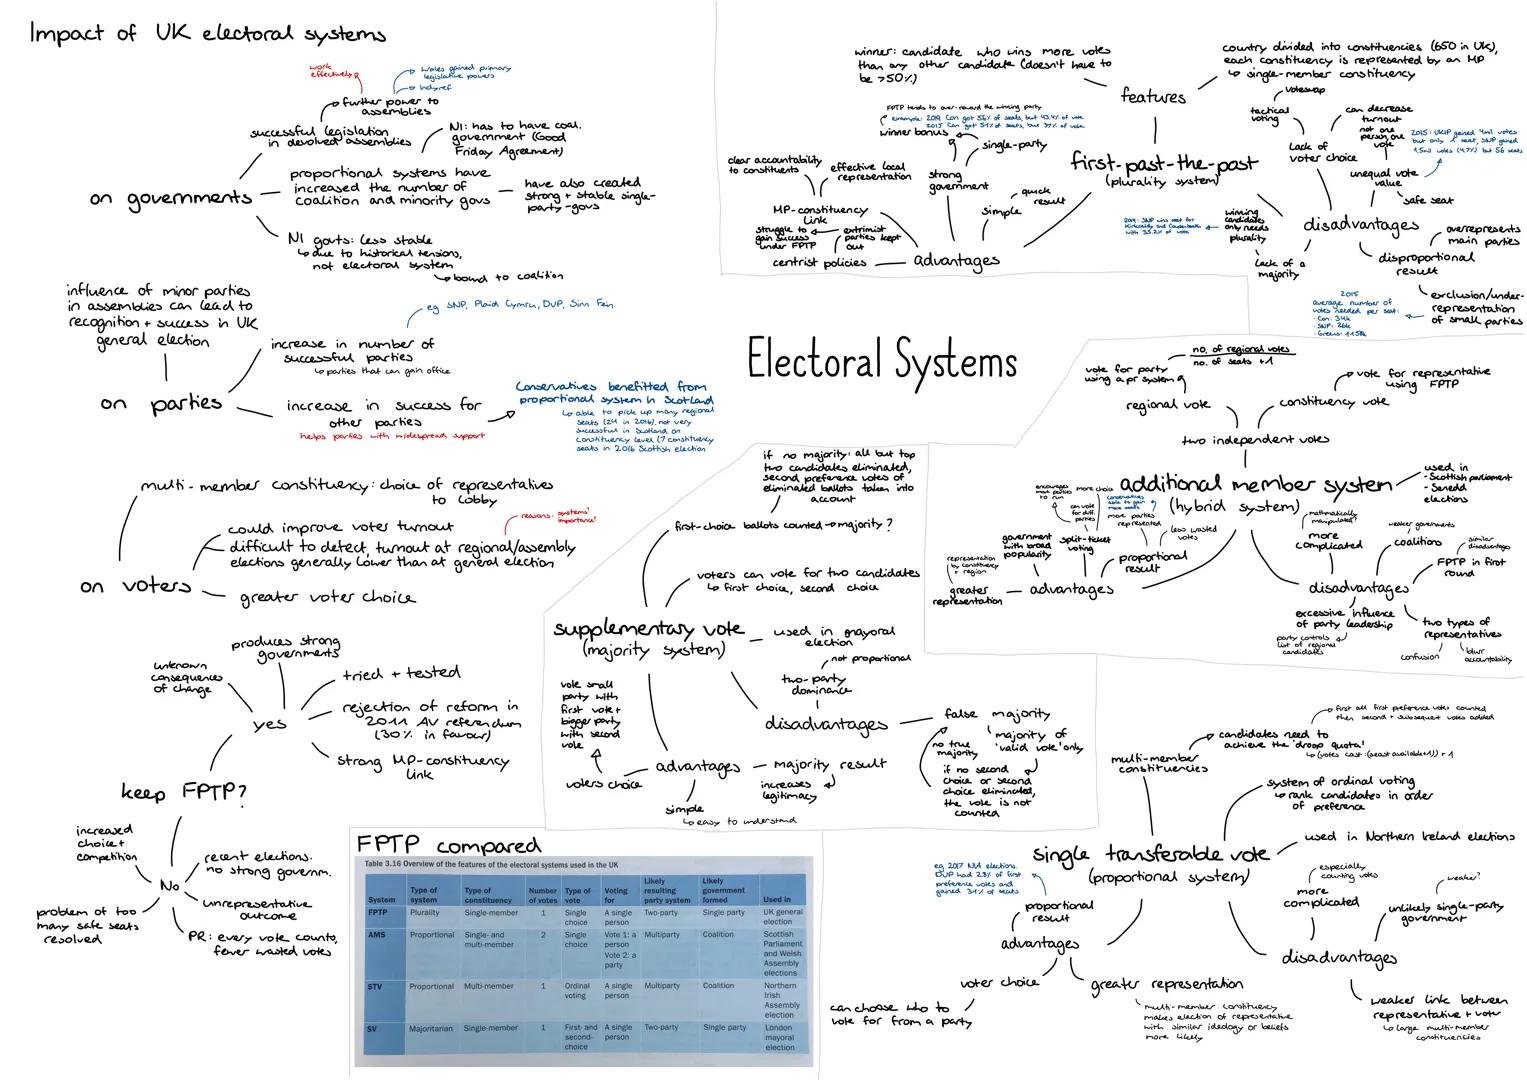 Impact of UK electoral systems
on governments
successful legislation
in devolved assemblies
further power to
assemblies
work
effectively
Wales gained primary
legislative powers
Indyref
proportional systems have
increased the number of
coalition and minority govs
NI: has to have coal.
government (Good
Friday Agreement)
have also created
strong + stable single-
party-govs
NI govts: less stable
↳ due to historical tensions,
not electoral system
↳ bound to coalition
on parties
influence of minor parties
in assemblies can lead to
recognition + success in UK
general election
increase in number of
successful parties
↳ parties that can gain office
eg SNP, Plaid Cymru, DUP, Sinn Fein
increase in success for
other parties
helps parties with widespread support
Conservatives benefitted from
proportional system in Scotland
↳ able to pick up many regional
seats (24 in 2016). not very
successful in Scotland on
constituency level (7 constituency
seats in 2016 Scottish election
on voters
multi-member constituency: choice of representatives
to lobby
could improve voter turnout
difficult to detect, turnout at regional/assembly
elections generally lower than at general election
reasons: systems?
importance?
greater voter choice
keep FPTP?
yes
unknown
consequences
of change
produces strong
governments
tried + tested
rejection of reform in
2011 AV referendum
(30% in favour)
strong MP-constituency
link
No
increased
choice +
competition
recent elections.
no strong governm.
unrepresentative
outcome
PR: every vote counts,
fewer wasted votes
problem of too
many safe seats
resolved
Electoral Systems
first-past-the-past
(plurality system)
features
winner: candidate who wins more votes
than any other candidate (doesn't have to
be >50%)
country divided into constituencies (650 in UK),
each constituency is represented by an MP
↳ single-member constituency
advantages
MP-constituency
link
clear accountability
to constituents
effective local
representation
centrist policies
struggle to
gain success
under FPTP
extrimist
parties kept
out
strong
government
winner bonus
FPTP tends to over-reward the winning party
example: 2019 Con got 56% of seats, but 43.4% of vote
2015 Con got 51% of seats, but 37% of vote
single-party
simple
quick
result
disadvantages
lack of
voter choice
tactical
voting
voteswap
can decrease
turnout
unequal vote
value
not one
person, one
vote
2015: UKIP gained 4mil votes
but only 1 seat, SNP gained
1.5mil votes (4.7%) but 56 seats
safe seat
disproportional
result
overrepresents
main parties
exclusion/under-
representation
of small parties
2015
average number of
votes needed per seat:
· Con: 34k
· SNP: 26k
· Greens: 1.158k
lack of a
majority
winning
candidates
only needs
plurality
2019: SNP wins seat for
Kirkcaldy and Cowdenbeath
with 35.2% of vote
additional member system
(hybrid system)
two independent votes
regional vote
vote for party
using a pr system
no. of regional votes
no. of seats +1
constituency vote
vote for representative
using FPTP
used in
- Scottish parliament
- Senedd
elections
advantages
greater
representation
representation
by constituency
+ region
government
with broad
popularity
encourages
more parties
to run
split-ticket
voting
more choice
can vote
for diff.
parties
proportional
result
more parties
represented
conservatives
able to gain
more seats
less wasted
votes
disadvantages
more
complicated
mathematically
manipulated?
coalitions
weaker governments
FPTP in first
round
similar
disadvantages
two types of
representatives
confusion
blur
accountability
excessive influence
of party leadership
party controls
list of regional
candidates
supplementary vote
(majority system)
first-choice ballots counted → majority?
if no majority: all but top
two candidates eliminated,
second preference votes of
eliminated ballots taken into
account
voters can vote for two candidates
↳ first choice, second choice
used in mayoral
election
disadvantages
two-party
dominance
not proportional
false majority
'majority of
'valid vote' only
no true
majority
if no second
choice or second
choice eliminated,
the vote is not
counted
advantages
majority result
increases
legitimacy
simple
↳ easy to understand
voters choice
vote small
party with
first vote +
bigger party
with second
vote
single transferable vote
(proportional system)
multi-member
constituencies
candidates need to
achieve the 'droop quota'
↳ (votes cast:(seast available+1)) + 1
first all first preference votes counted
then second + subsequent votes added
system of ordinal voting
↳ rank candidates in order
of preference
used in Northern Ireland elections
advantages
proportional
result
eg 2017 NIA elections.
DUP had 28% of first
preference votes and
gained 31% of seats
voter choice
can choose who to
vote for from a party
greater representation
multi-member constituency
makes election of representative
with similar ideology or beliefs
more likely
disadvantages
more
complicated
especially
counting votes
unlikely single-party
government
weaker?
weaker link between
representative + voter
↳ large multi-member
constituencies
FPTP compared
Table 3.16 Overview of the features of the electoral systems used in the UK
System | Type of system | Type of constituency | Number of votes | Type of vote | Voting for | Likely resulting party system | Likely government formed | Used in
FPTP | Plurality | Single-member | 1 | Single choice | A single person | Two-party | Single party | UK general election
AMS | Proportional | Single- and multi-member | 2 | Single choice | Vote 1: a person Vote 2: a party | Multiparty | Coalition | Scottish Parliament and Welsh Assembly elections
STV | Proportional | Multi-member | 1 | Ordinal voting | A single person | Multiparty | Coalition | Northern Irish Assembly election
SV | Majoritarian | Single-member | 1 | First- and second-choice | A single person | Two-party | Single party | London mayoral election